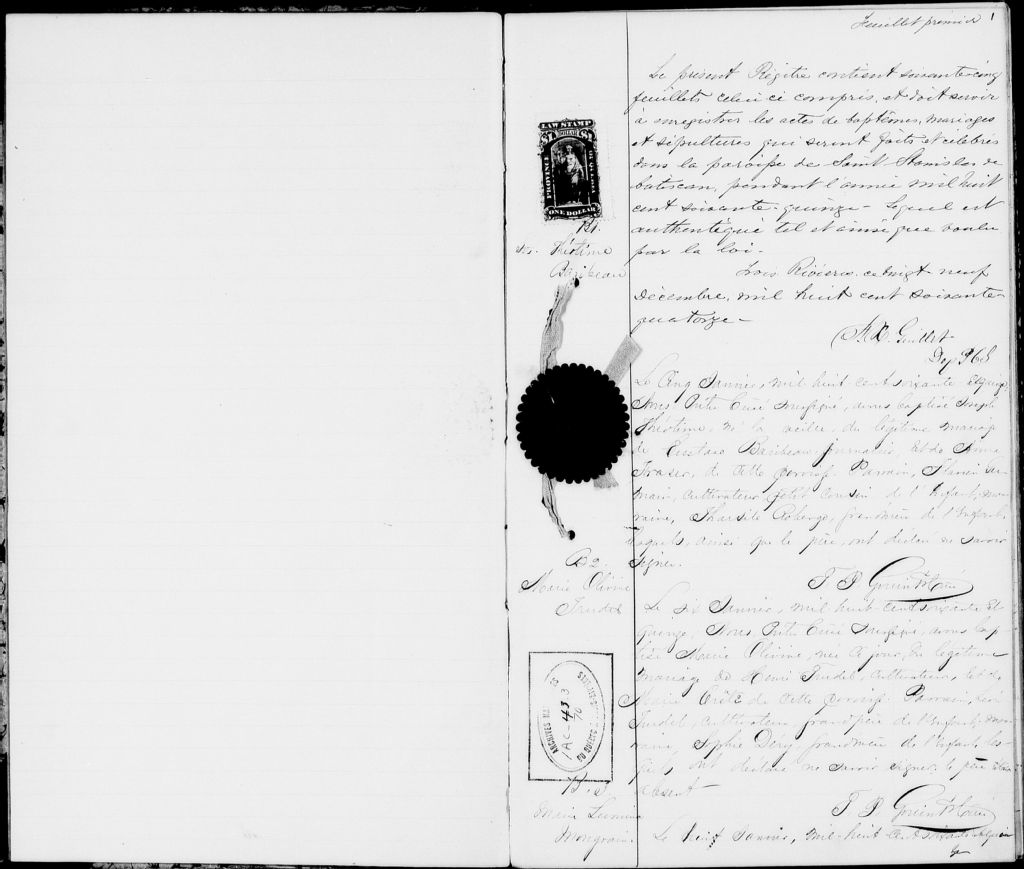 Feuillet premier 1
Le présent Régitre contient soixante-cinq
feuillets celui ci compris, et doit servir
à enregistrer les acte de baptêmes, mariages
et sépultures qui seront faits et célébrés
dans la paroisse de Saint Stanislas de
batiscan, pendant l'année mil huit
cent soixante-quinze - Lequel est
authentiqué tel et ainsi que voulu
par la loi.
Trois Rivières ce vingt neuf
Décembre, mil huit cent soixante-
quatorze -
Guillet
Dep
LAW STAMP
$1 DOLLAR $1
PROVINCE
ONE DOLLAR
B1.
Théotime
Baribeau
Le Cinq Janvier, mil huit cent soixante et quinze
Nous Prêtre Curé soussigné, avons baptisé Joseph
Théotime, né la veille, du légitime mariage
de Gustave Baribeau, journalier, et de Anna
Fraser, de cette paroisse Parrain,
cultivateur, petit cousin de l'Enfant, mar
raine, Tharsile grandmère de l'Enfant,
lesquels, ainsi que le père, ont déclaré ne savoir
signer.
B2.
Marie Olivine
Trudel
Le six Janvier, mil huit cent soixante et
quinze, Nous Prêtre Curé soussigné, avons bap
tisé Marie Olivine, née ce jour, du légitime
mariage de Henri Trudel, cultivateur, et de
Marie de cette paroisse Parrain,
Trudel, cultivateur, grandpère de l'Enfant, mar
raine, Sophie Déry, grandmère de l'Enfant les
quels ont déclaré ne savoir signer. le père étant
absent -
ARCHIVES
1AC-433
70
B.3
Marie
Mongrain
Le huit Janvier, mil huit cent soixante et quin
ze